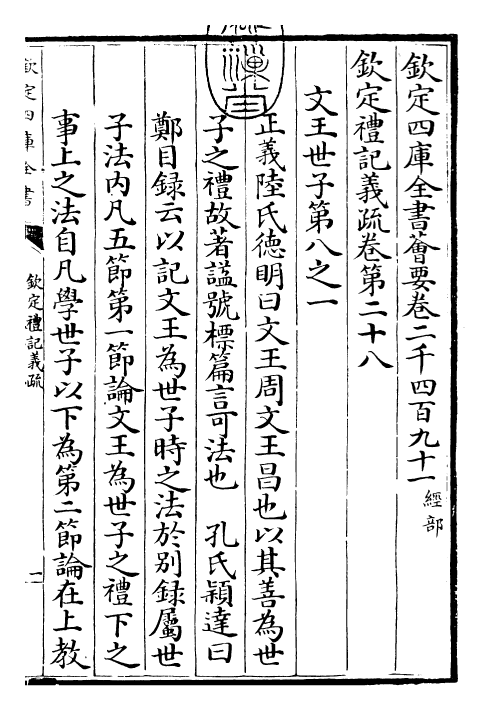 欽定四庫全書薈要卷二千四百九十一 經部
欽定禮記義疏卷第二十八
文王世子第八之一
正義陸氏德明曰文王周文王昌也以其善為世
子之禮故著諡號標篇言可法也 孔氏穎達曰
鄭目録云以記文王為世子時之法於别録屬世
子法内凡五節第一節論文王為世子之禮下之
事上之法自凡學世子以下為第二節論在上教
欽定四庫全書
欽定禮記義疏
一